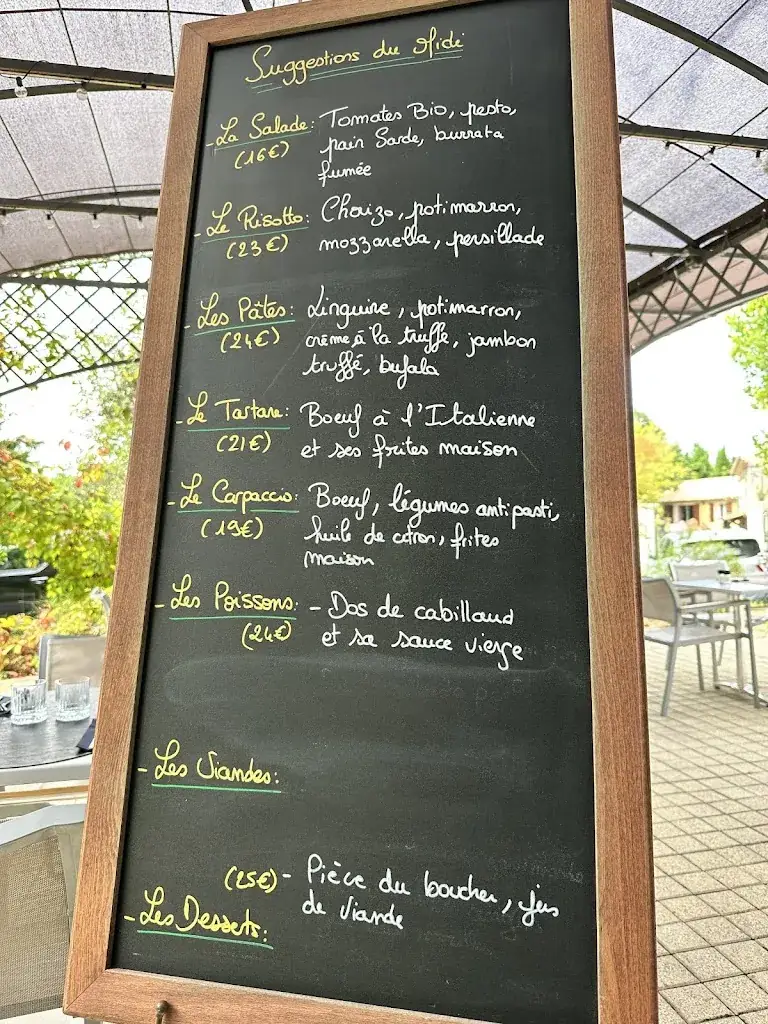 Suggestions du Midi
- La Salade: Tomates Bio, pesto,
(16€) pain Sarde, burrata
fumée
- Le Risotto: Chorizo, potimarron,
(23€) mozzarella, persillade
- Les Pâtes: Linguine, potimarron,
(24€) crème à la truffe, jambon
truffé, bufala
- Le Tartare: Boeuf à l'Italienne
(21€) et ses frites maison
- Le Carpaccio: Boeuf, légumes antipasti,
(19€) huile de citron, frites
maison
- Les Poissons: - Dos de cabillaud
(24€) et sa sauce vierge
- Les Viandes:
(25€) - Pièce du boucher, jus
de viande
- Les Desserts: